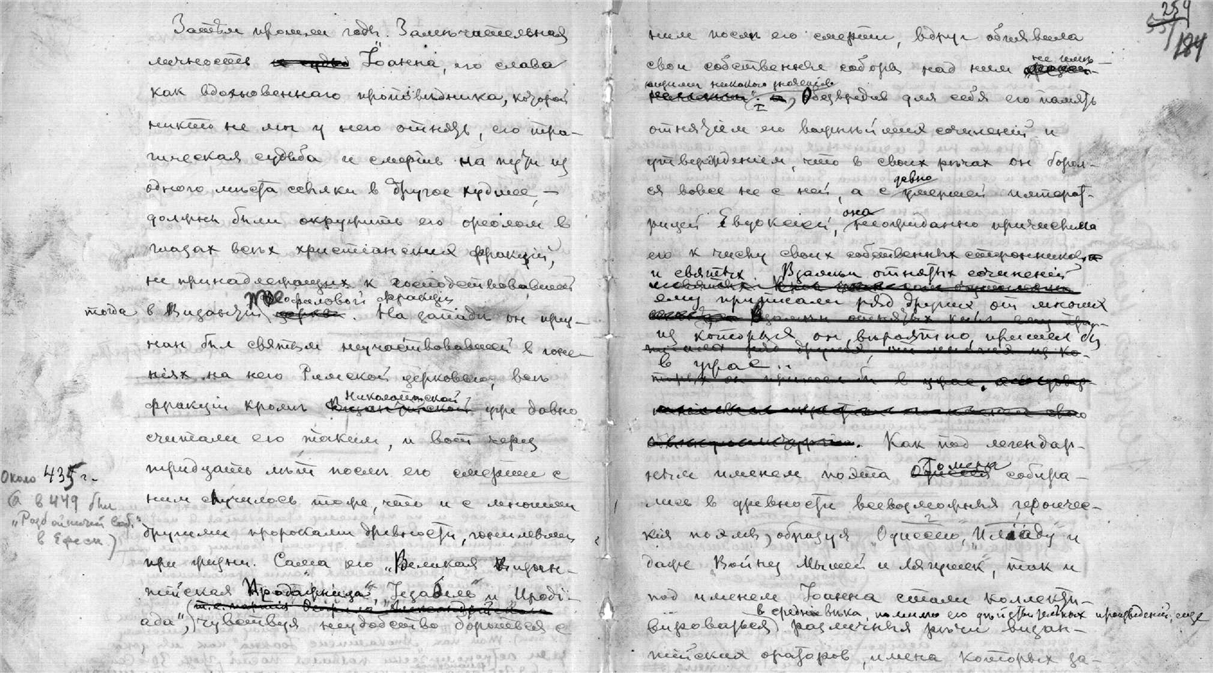 Затѣм прошли годы. Замѣчательная
личность Іоанна, его слава
как вдохновеннаго проповѣдника, которой
никто не мог у него отнять, его тра-
гическая судьба и смерть на пути из
одного мѣста ссылки в другое худшее, —
должны были окружить его ореолом в
глазах всѣх христіанских фракцій,
не принадлежащих к господствовавшей
тогда в Византіи фракціи. На западѣ он приз-
нан был святым неучаствовавшей в гоне-
ніях на него Римской церковью, всѣ
фракціи кромѣ Николаитской уже давно
считали его таким, и вот через
тридцать лѣт послѣ его смерти с
Около 435 г.
(а в 449 был
„Разбойничій соб."
в Ефесѣ)
ним случилось тоже, что и с многими
другими пророками древности, гонимыми
при жизни. Сама его „Великая Визан-
тійская „Іезабель" и Иродіа-
ада", чувствуя неудобство бороться с
259
184
ним послѣ его смерти, вдруг объявила
свои собственные соборы над ним не имѣ-
ющими никакого значенія, Обезвредив для себя его память
отнятіем его важнѣйших сочиненій и
утвержденіем, что в своих рѣчах он борол-
ся вовсе не с ней, а с давно умершей императ-
рицей Евдоксіей, она неожиданно причислила
его к числу своих собственных сторонников
и святых. Взамѣн отнятых сочиненій
ему приписали ряд других от многих
из которых он, вѣроятно, пришел бы
в ужас..
Как под легендар-
ным именем поэта Гомера собира-
лись в древности всевозможныя героичес-
кія поэмы, образуя „Одиссею", „Иліаду" и
даже Войну Мышей и Лягушек, так и
под именем Іоанна стали коллекти-
вироваться в средніе вѣка, помимо его дѣйствительных произведеній, еще
различныя рѣчи визан-
тійских ораторов, имена которых за-